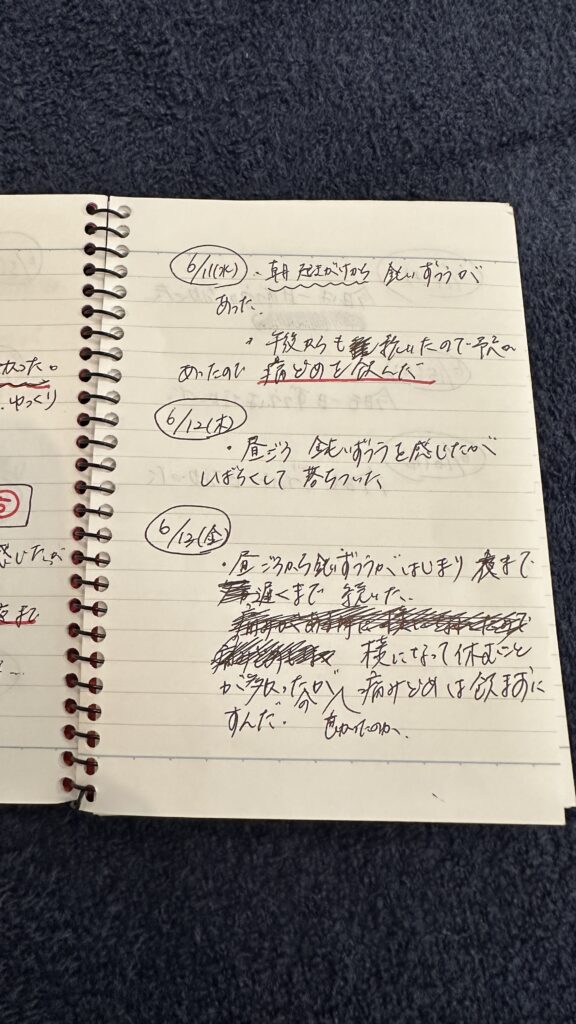 欠った。
ゆっくり
⑤
感じたが
夜まで
6/11(水)・朝 起きがけから 鈍いずつうが
あった。
・午後からも 続いたので 予定が
あったので 痛どめを飲んだ
6/12(木)
・昼ごろ 鈍いずつうを感じたが
しばらくして 落ちついた
6/13(金)
・昼ごろから鈍いずつうがはじまり 夜まで
遅くまで 続いた。
横になって休むこと
が多かったが 痛みどめは飲まずに
すんだ。